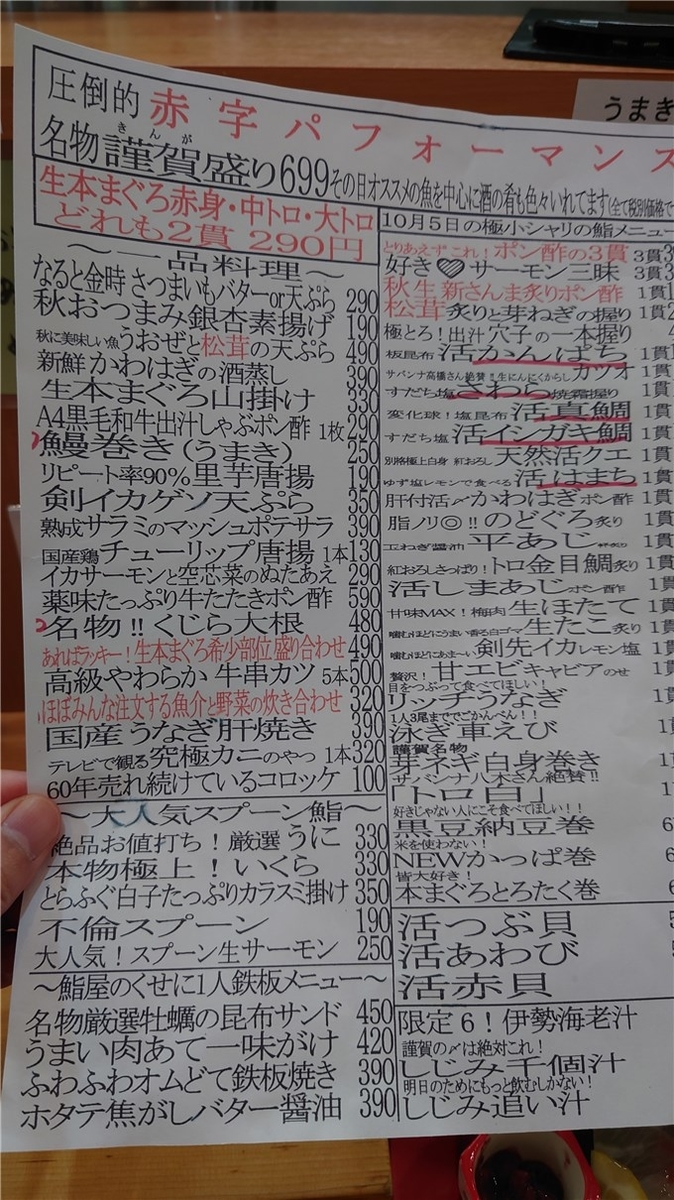 うまき
圧倒的赤字パフォーマンス
きんが
名物謹賀盛り699その日オススメの魚を中心に酒の肴も色々いれてます(全て税別価格で
生本まぐろ赤身・中トロ・大トロ
どれも2貫 290円
～一品料理～
なると金時 さつまいもバターor天ぷら 290
秋おつまみ銀杏素揚げ 190
秋に美味しい魚うおぜと松茸の天ぷら 490
新鮮かわはぎの酒蒸し 390
生本まぐろ山掛け 330
A4黒毛和牛出汁しゃぶポン酢 1枚 290
鰻巻き(うまき) 250
リピート率90%里芋唐揚 190
剣イカゲソ天ぷら 350
熟成サラミのマッシュポテサラ 390
国産鶏チューリップ唐揚 1本130
イカサーモンと空芯菜のぬたあえ 290
薬味たっぷり牛たたきポン酢 590
名物!!くじら大根 480
あればラッキー!生本まぐろ希少部位盛り合わせ 490
高級やわらか 牛串カツ 5本500
ほぼみんな注文する魚介と野菜の炊き合わせ 320
国産うなぎ肝焼き 390
テレビで観る究極カニのやつ 1本320
60年売れ続けているコロッケ 100
～大人気スプーン鮨～
絶品お値打ち!厳選うに 330
本物極上!いくら 330
とらふぐ白子たっぷりカラスミ掛け 350
不倫スプーン 190
大人気!スプーン生サーモン 250
～鮨屋のくせに1人鉄板メニュー～
名物厳選牡蠣の昆布サンド 450
うまい肉あて一味がけ 420
ふわふわオムどて鉄板焼き 390
ホタテ焦がしバター醤油 390
10月5日の極小シャリの鮨メニュー
とりあえずこれ!ポン酢の3貫 3貫3
好き♡サーモン三昧 3貫3
秋生新さんま炙りポン酢 1貫1
松茸炙りと芽ねぎの握り 1貫
極とろ!出汁穴子の一本握り 4
板昆布 活かんぱち 1貫1
サバンナ高橋さん絶賛!!生にんにくからし カツオ 1貫
すだち塩 さわら焼霜握り 1貫
変化球!塩昆布 活真鯛 1貫
すだち塩 活イシガキ鯛 1貫
別格極上白身 紅おろし 天然活クエ 1貫
ゆず塩レモンで食べる 活はまち 1貫
肝付活〆かわはぎポン酢 1貫
脂ノリ◎!!のどぐろ炙り 1貫
玉ねぎ醤油 平あじ 1貫
紅おろしさっぱり!トロ金目鯛炙り 1貫
活しまあじポン酢 1貫
甘味MAX!梅肉 生ほたて 1貫
噛むほどにうまい香る白ゴマ 生たこ炙り 1貫
噛むほどにあま～い 剣先イカレモン塩 1貫
贅沢!甘エビキャビアのせ 1貫
目をつぶって食べてほしい!
リッチうなぎ 1貫
1人3尾まででごかんべん!!
泳ぎ車えび 1貫
謹賀名物
芽ネギ白身巻き 1
サバンナ八木さん絶賛!!
「トロ白」 1
好きじゃない人にこそ食べてほしい!!
黒豆納豆巻 6
米を使わない!
NEWかっぱ巻 6
皆大好き!
本まぐろとろたく巻 6
活つぶ貝 5
活あわび
活赤貝
限定6!伊勢海老汁
謹賀の〆は絶対これ!
しじみ千個汁
明日のためにもっと飲むしかない!
しじみ追い汁